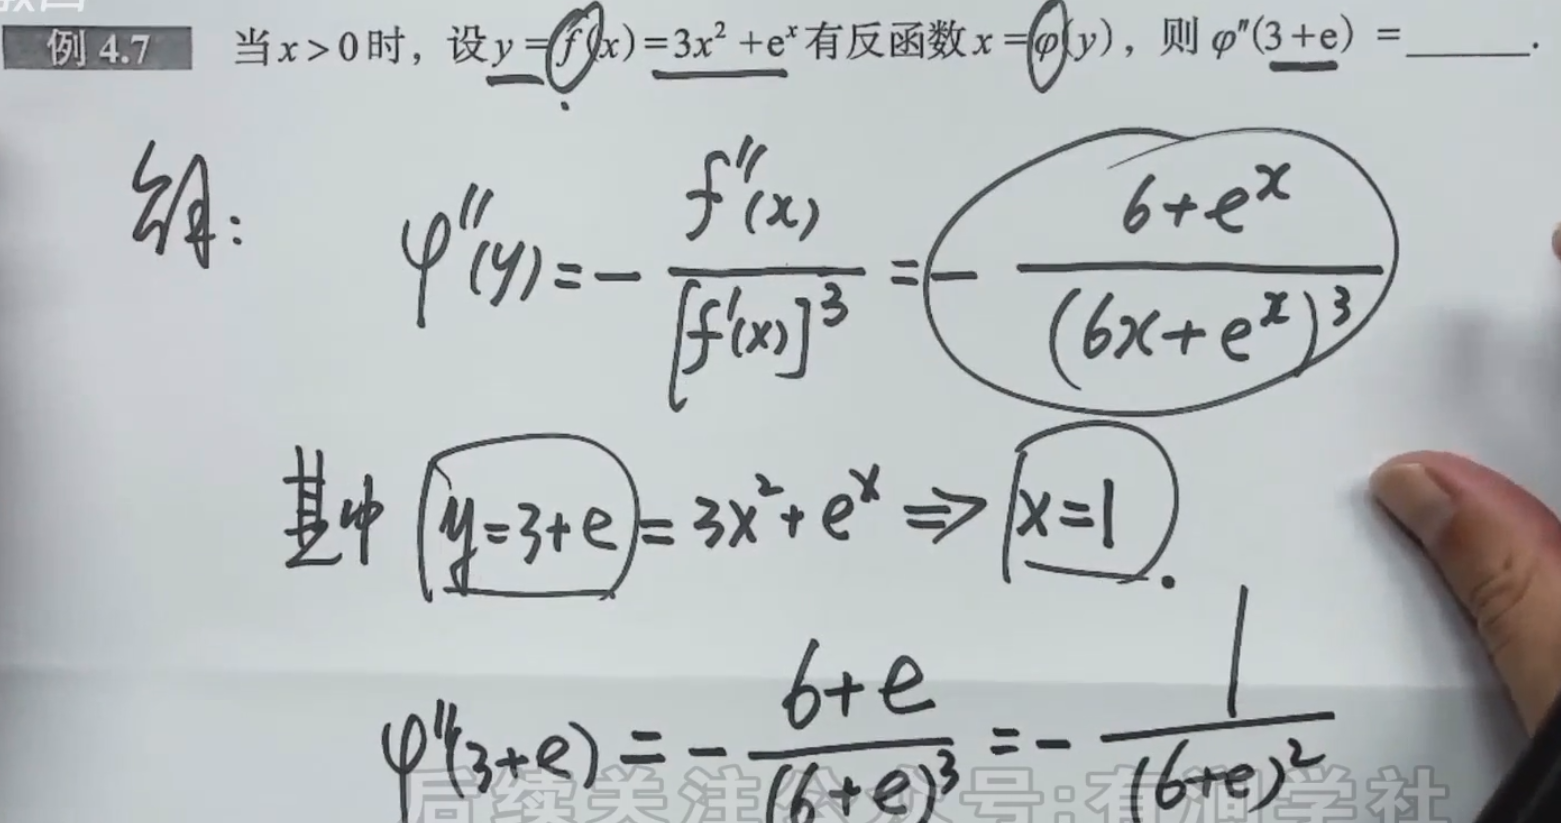 例 4.7 当 x > 0 时，设 y = f(x) = 3x² + eˣ 有反函数 x = φ(y)，则 φ″(3+e) = ______.
解：φ″(y) = - f″(x) / [f′(x)]³ = - (6+eˣ) / (6x+eˣ)³
其中 y=3+e = 3x²+eˣ ⇒ x=1.
φ″(3+e) = - (6+e) / (6+e)³ = - 1 / (6+e)²
后续关注公众号:有渊学社